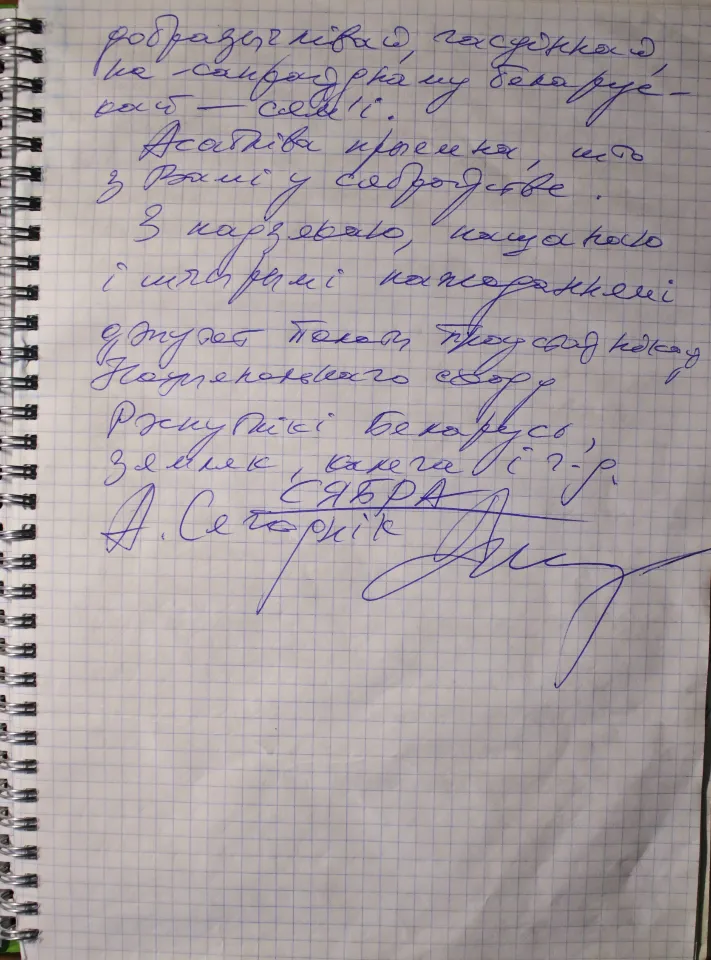 добразычлівай, гасціннай,
па-сапраўднаму беларус-
кай — сям'і.
Асабліва прыемна, што
з Вамі у сяброўстве.
З надзеяю, пашанаю
і шчырымі пажаданнямі
дэпутат Палаты прадстаўнікоў
Нацыянальнага сходу
Рэспублікі Беларусь,
зямляк, калега і г.д.
СЯБРА
А. Сягоднік